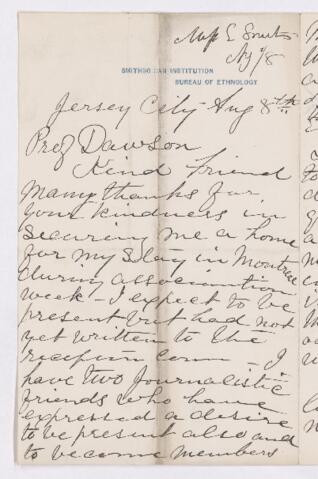 Aug 8
SMITHSONIAN INSTITUTION
BUREAU OF ETHNOLOGY
Jersey City Aug 8th
Prof Dawson
Kind friend
Many thanks for
your kindness in
securing me a home
for my stay in Montreal
during association
week - I expect to be
present but had not
yet written to the
recept'n Com - I
have two Journalistic
friends who have
expressed a desire
to be present also and
to become members